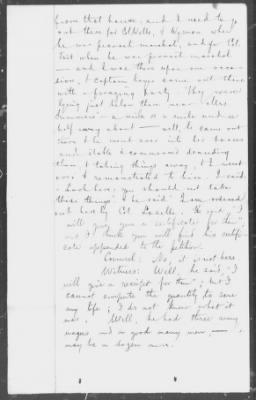 from that house, and I used to go
out there for Col. Wells, & Wyman when
he was provost marshal, and for Col.
Fish when he was provost marshal
— and I was there upon one occa-
sion, & Captain came out there
with a foraging party. They were
lying just below there near
Summers — a mile or a mile and a
half away about — well, he came out
there & he went over into his
and stable & commenced
them & taking things away, & I went
over & remonstrated to him. I said
"Look here, you should not take
those things", & he said "I am ordered
out here by Col. " he said "I
will give you a certificate for them"
and I think you will find his certifi-
cate appended to the petition.
Counsel: No, it is not here
Witness: Well, he said, "I
will give a receipt for them"; but I
cannot compute the quantity to save
my life; I do not know what it
was. Well, he had three army
wagons and a good many men, —
may be a dozen men.